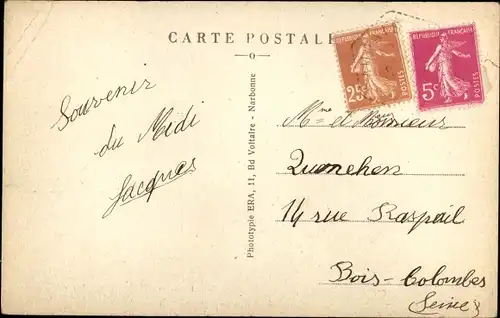 CARTE POSTALE
Souvenir
du Midi
Jacques
Phototypie ERA, 11, Bd Voltaire - Narbonne
REPUBLIQUE FRANÇAISE
25c
POSTES
REPUBLIQUE FRANÇAISE
5c
POSTES
Mme et Monsieur
Quenehen
14 rue Raspail
Bois-Colombes
(Seine)